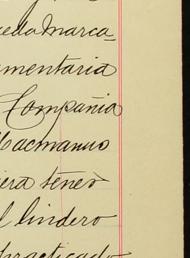 ueda marca-
mentaria
Compañia
Macmanus
iera tener
l lindero
practicado